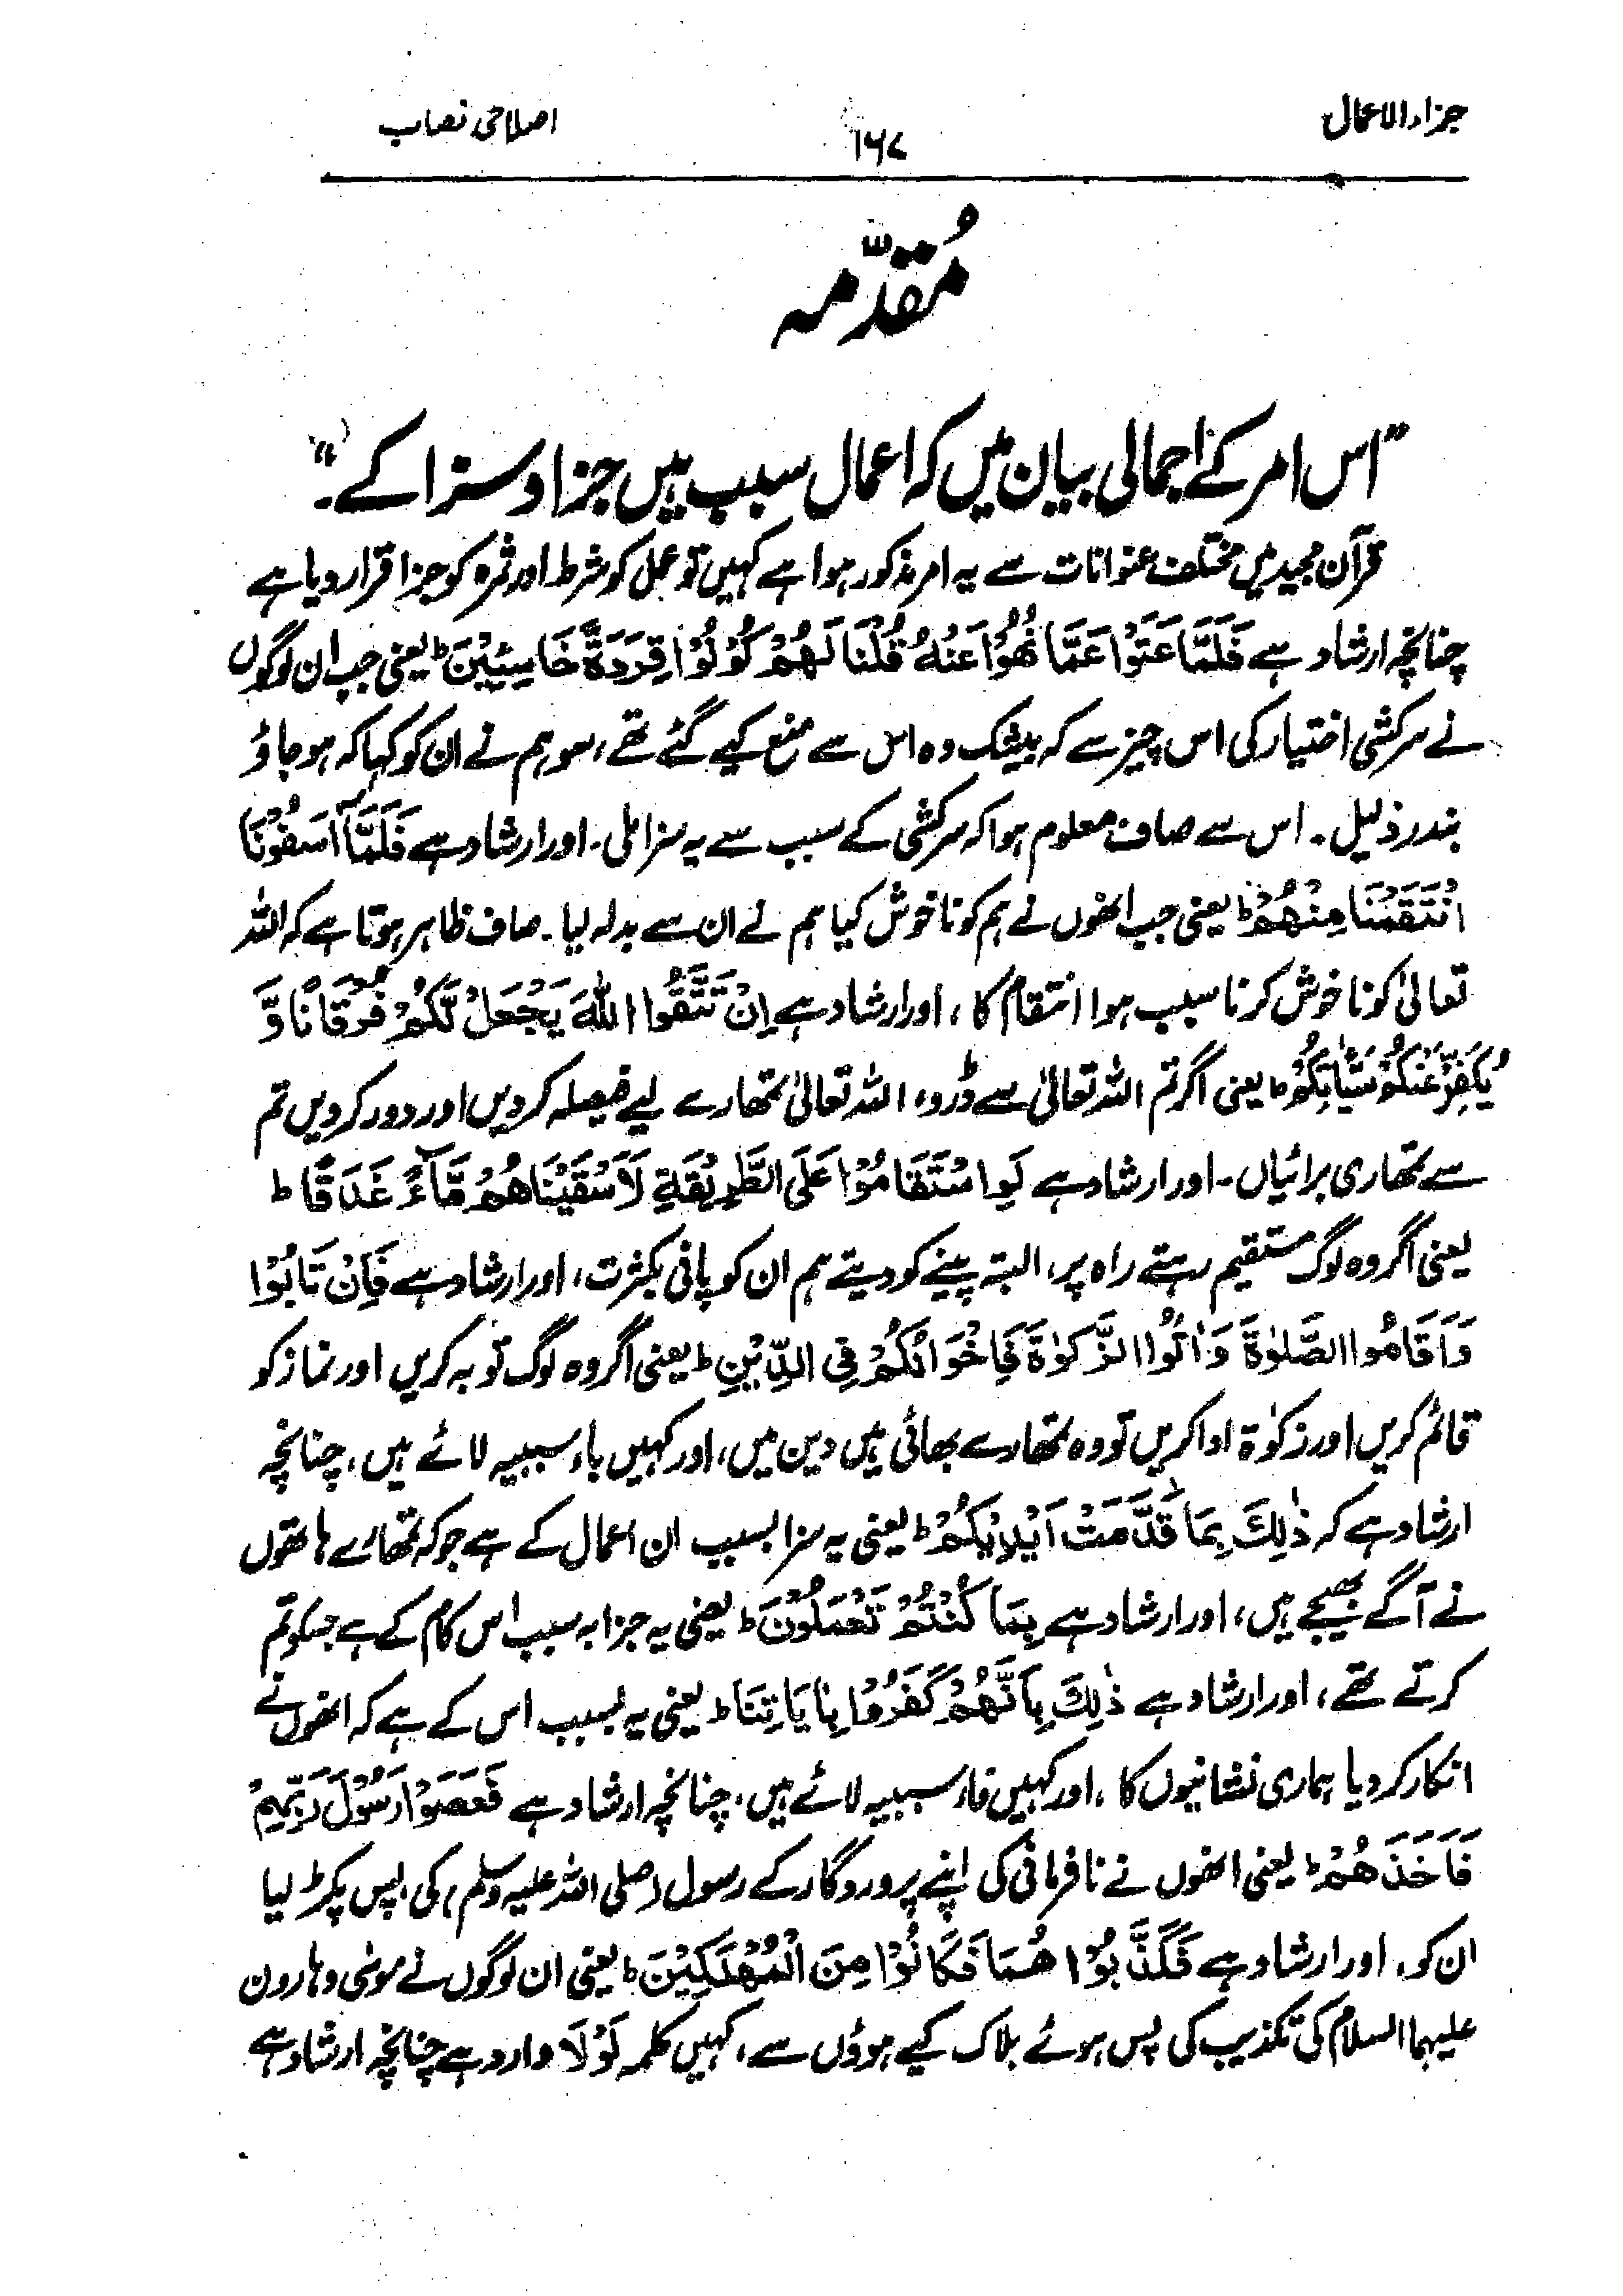 جزاء الاعمال
۱۶۷
اصلاحی نصاب
مُقدّمہ
"اس امر کے اجمالی بیان میں کہ اعمال سبب ہیں جزا و سزا کے۔"
قرآن مجید میں مختلف عنوانات سے یہ امر مذکور ہوا ہے کہیں تو عمل کو شرط اور ثمرہ کو جزا قرار دیا ہے
چنانچہ ارشاد ہے فَلَمَّا عَتَوْا عَمَّا نُهُوْا عَنْهُ قُلْنَا لَهُمْ كُوْنُوْا قِرَدَةً خَاسِئِيْنَ ط یعنی جب ان لوگوں
نے سرکشی اختیار کی اس چیز سے کہ بیشک وہ اس سے منع کیے گئے تھے، سو ہم نے ان کو کہا کہ ہو جاؤ
بندر ذلیل۔ اس سے صاف معلوم ہوا کہ سرکشی کے سبب سے یہ سزا ملی۔ اور ارشاد ہے فَلَمَّا آسَفُوْنَا
انْتَقَمْنَا مِنْهُمْ ط یعنی جب انھوں نے ہم کو ناخوش کیا ہم نے ان سے بدلہ لیا۔ صاف ظاہر ہوتا ہے کہ اللہ
تعالیٰ کو ناخوش کرنا سبب ہوا انتقام کا، اور ارشاد ہے اِنْ تَتَّقُوا اللهَ يَجْعَلْ لَّكُمْ فُرْقَانًا وَّ
يُكَفِّرْ عَنْكُمْ سَيِّاٰتِكُمْ ط یعنی اگر تم اللہ تعالیٰ سے ڈرو، اللہ تعالیٰ تمھارے لیے فیصلہ کردیں اور دور کردیں تم
سے تمھاری برائیاں۔ اور ارشاد ہے لَوِ اسْتَقَامُوْا عَلَى الطَّرِيْقَةِ لَاَسْقَيْنَاهُمْ مَّآءً غَدَقًا ط
یعنی اگر وہ لوگ مستقیم رہتے راہ پر، البتہ پینے کو دیتے ہم ان کو پانی بکثرت، اور ارشاد ہے فَاِنْ تَابُوْا
وَاَقَامُوا الصَّلٰوةَ وَاٰتَوُا الزَّكٰوةَ فَاِخْوَانُكُمْ فِي الدِّيْنِ ط یعنی اگر وہ لوگ توبہ کریں اور نماز کو
قائم کریں اور زکوٰۃ ادا کریں تو وہ تمھارے بھائی ہیں دین میں، اور کہیں باء سببیہ لائے ہیں، چنانچہ
ارشاد ہے کہ ذٰلِكَ بِمَا قَدَّمَتْ اَيْدِيْكُمْ ط یعنی یہ سزا بسبب ان اعمال کے ہے جو کہ تمھارے ہاتھوں
نے آگے بھیجے ہیں، اور ارشاد ہے بِمَا كُنْتُمْ تَعْمَلُوْنَ ط یعنی یہ جزا بہ سبب اس کام کے ہے جسکو تم
کرتے تھے، اور ارشاد ہے ذٰلِكَ بِاَنَّهُمْ كَفَرُوْا بِاٰيَاتِنَا ط یعنی یہ بسبب اس کے ہے کہ انھوں نے
انکار کر دیا ہماری نشانیوں کا، اور کہیں فاء سببیہ لائے ہیں، چنانچہ ارشاد ہے فَعَصَوْا رَسُوْلَ رَبِّهِمْ
فَاَخَذَهُمْ ط یعنی انھوں نے نافرمانی کی اپنے پروردگار کے رسول (صلی اللہ علیہ وسلم) کی، پس پکڑ لیا
ان کو۔ اور ارشاد ہے فَكَذَّبُوْا هُمَا فَكَانُوْا مِنَ الْمُهْلَكِيْنَ ط یعنی ان لوگوں نے موسیٰ و ہارون
علیہما السلام کی تکذیب کی پس ہوئے ہلاک کیے ہوؤں سے، کہیں کلمہ لَوْلَا وارد ہے چنانچہ ارشاد ہے